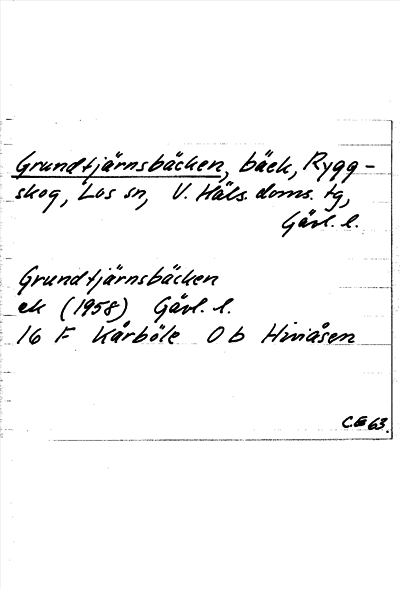 Grundtjärnsbäcken, bäck, Rygg-
skog, Los sn, V. Häls. doms. tg,
Gävl. l.
Grundtjärnsbäcken
ek (1958) Gävl. l.
16 F Kårböle 0 b Hiviåsen
CE 63.